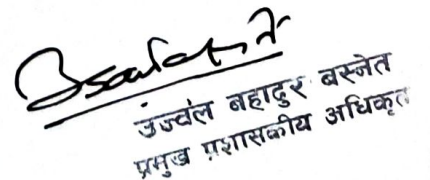 उज्वल बहादुर बस्नेत
प्रमुख प्रशासकीय अधिकृत